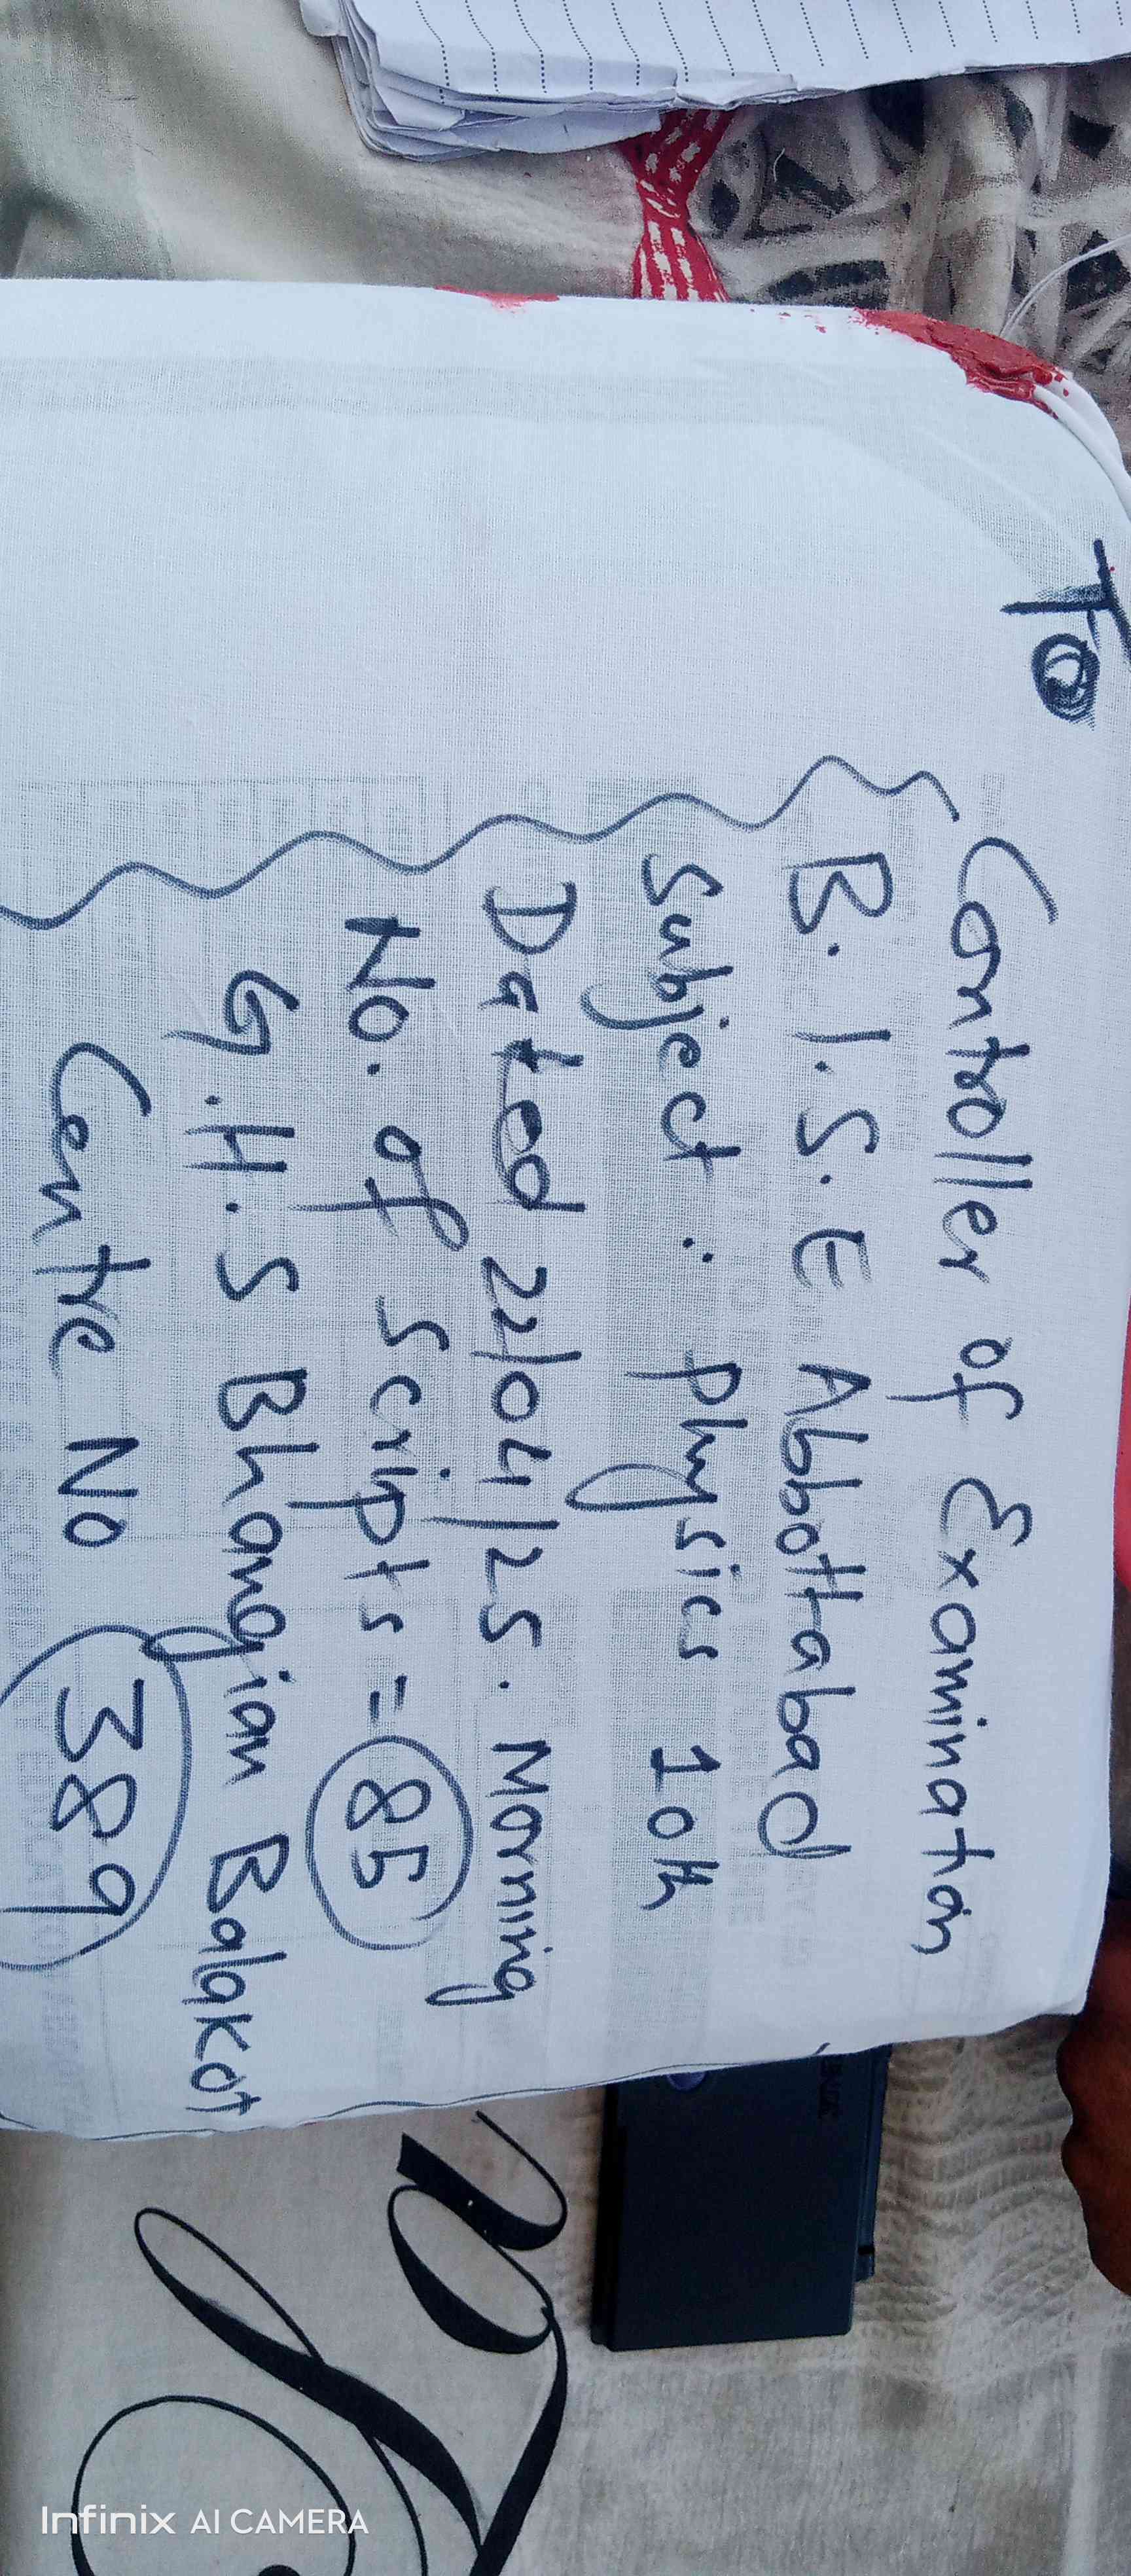 To
Controller of Examination
B.I.S.E Abbottabad
Subject: Physics 10th
Dated 22/04/25. Morning
No. of Scripts = 85
G.H.S Bhangian Balakot
Centre No 389
Infinix AI CAMERA